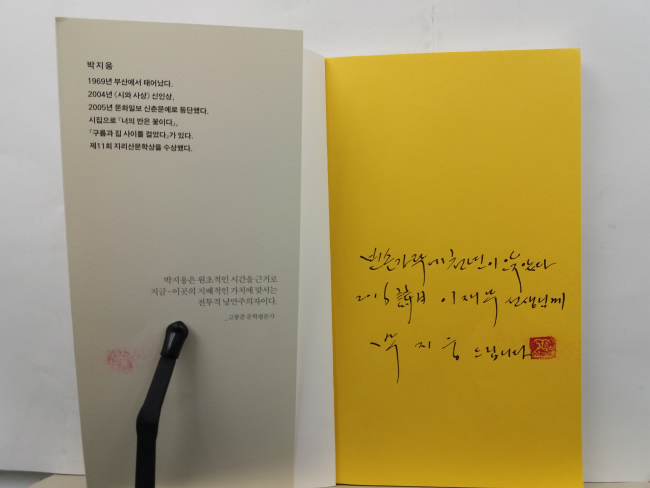 박지웅
1969년 부산에서 태어났다.
2004년 《시와 사상》 신인상,
2005년 문화일보 신춘문예로 등단했다.
시집으로 『너의 반은 꽃이다』,
『구름과 집 사이를 걸었다』가 있다.
제11회 지리산문학상을 수상했다.
박지웅은 원초적인 시간을 근거로
지금-이곳의 지배적인 가치에 맞서는
전투적 낭만주의자이다.
_고봉준·문학평론가
빈 손가락에 천년이 앉았다
2016 이재무 선생님께
박지웅 드립니다